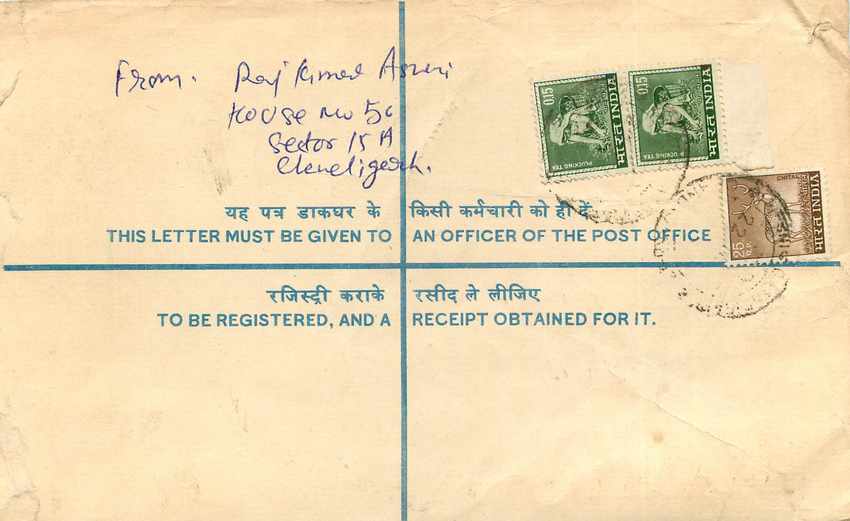 From. Raj Kumar
House No 56
Sector 15 A
Chandigarh.
0.15 भारत INDIA PLUCKING TEA
0.15 भारत INDIA PLUCKING TEA
25 भारत INDIA CHITAL
यह पत्र डाकघर के किसी कर्मचारी को ही दें
THIS LETTER MUST BE GIVEN TO AN OFFICER OF THE POST OFFICE
रजिस्ट्री कराके रसीद ले लीजिए
TO BE REGISTERED, AND A RECEIPT OBTAINED FOR IT.